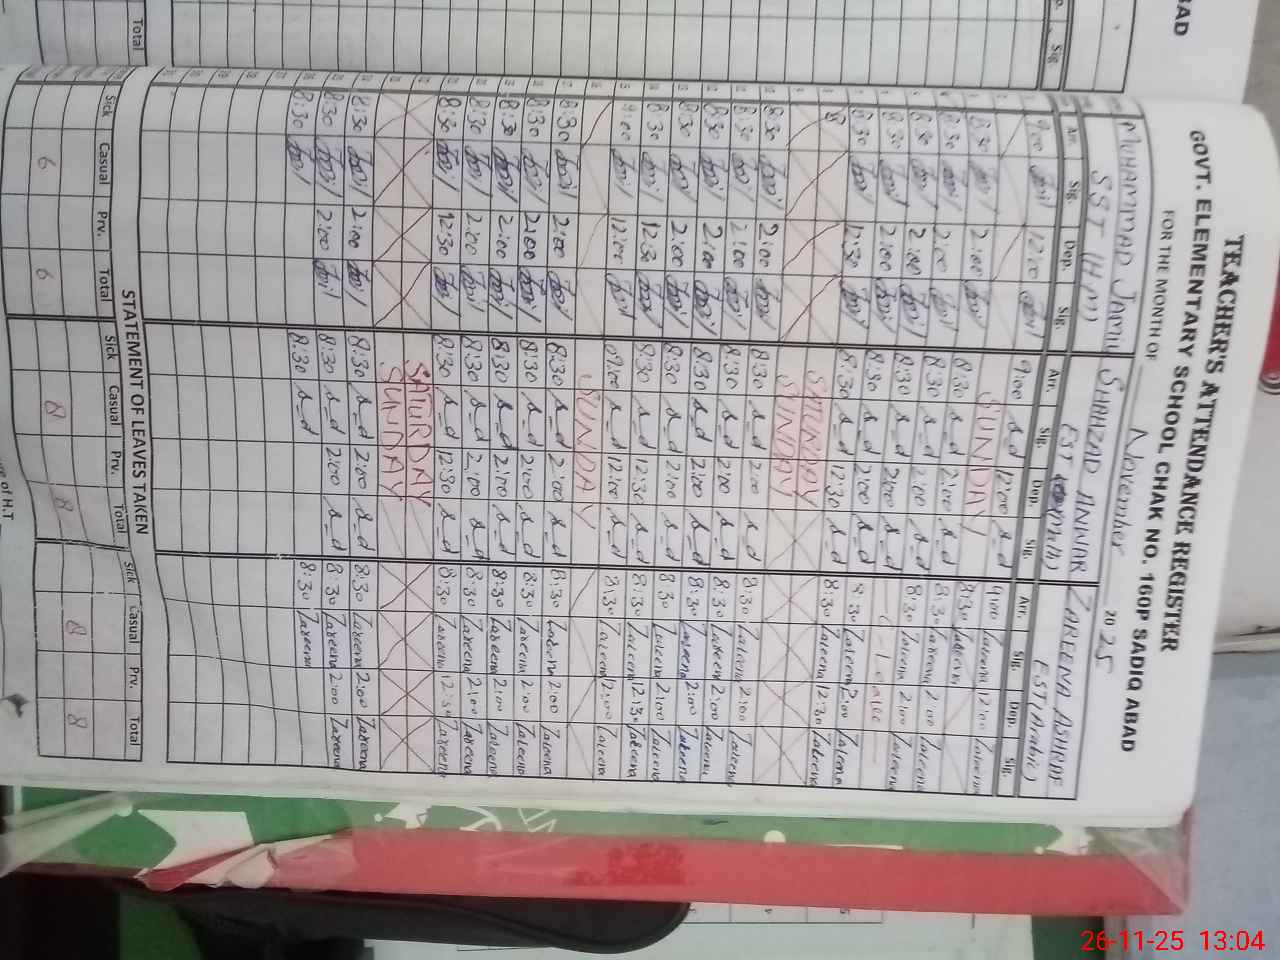 TEACHER'S ATTENDANCE REGISTER
GOVT. ELEMENTARY SCHOOL CHAK NO. 160P SADIQ ABAD
FOR THE MONTH OF November 2025
MUHAMMAD Jamil SHAHZAD ANWAR ZAREENA ASHRAF
SST (H.M) EST EST (Arabic)
Arr. Sig. Dep. Sig. Arr. Sig. Dep. Sig. Arr. Sig. Dep. Sig.
9:00 12:00 9:00 s_d 12:00 s_d 9:00 Zareena 12:00 Zareena
SUNDAY 8:30 Zareena
8:30 2:00 8:30 s_d 2:00 s_d 8:30 Zareena 2:00 Zareena
8:30 2:00 8:30 s_d 2:00 s_d 8:30 Zareena 2:00 Zareena
8:30 2:00 8:30 s_d 2:00 s_d C Leave
8:30 2:00 8:30 s_d 2:00 s_d 8:30 Zareena 2:00 Zareena
8:30 12:30 8:30 s_d 12:30 s_d 8:30 Zareena 12:30 Zareena
SATURDAY
SUNDAY
8:30 2:00 8:30 s_d 2:00 s_d 8:30 Zareena 2:00 Zareena
8:30 2:00 8:30 s_d 2:00 s_d 8:30 Zareena 2:00 Zareena
8:30 2:00 8:30 s_d 2:00 s_d 8:30 Zareena 2:00 Zareena
8:30 2:00 8:30 s_d 2:00 s_d 8:30 Zareena 2:00 Zareena
8:30 12:30 8:30 s_d 12:30 s_d 8:30 Zareena 12:30 Zareena
9:00 12:00 09:00 s_d 12:00 s_d 8:30 Zareena 2:00 Zareena
SUNDAY
8:30 2:00 8:30 s_d 2:00 s_d 8:30 Zareena 2:00 Zareena
8:30 2:00 8:30 s_d 2:00 s_d 8:30 Zareena 2:00 Zareena
8:30 2:00 8:30 s_d 2:00 s_d 8:30 Zareena 2:00 Zareena
8:30 2:00 8:30 s_d 2:00 s_d 8:30 Zareena 2:00 Zareena
8:30 12:30 8:30 s_d 12:30 s_d 8:30 Zareena 12:30 Zareena
SATURDAY
SUNDAY
8:30 2:00 8:30 s_d 2:00 s_d 8:30 Zareena 2:00 Zareena
8:30 2:00 8:30 s_d 2:00 s_d 8:30 Zareena 2:00 Zareena
8:30 8:30 s_d 8:30 Zareena
STATEMENT OF LEAVES TAKEN
Sick Casual Prv. Total Sick Casual Prv. Total Sick Casual Prv. Total
6 6 8 8 8 8
of H.T
BAD
Sig.
Total
26-11-25 13:04